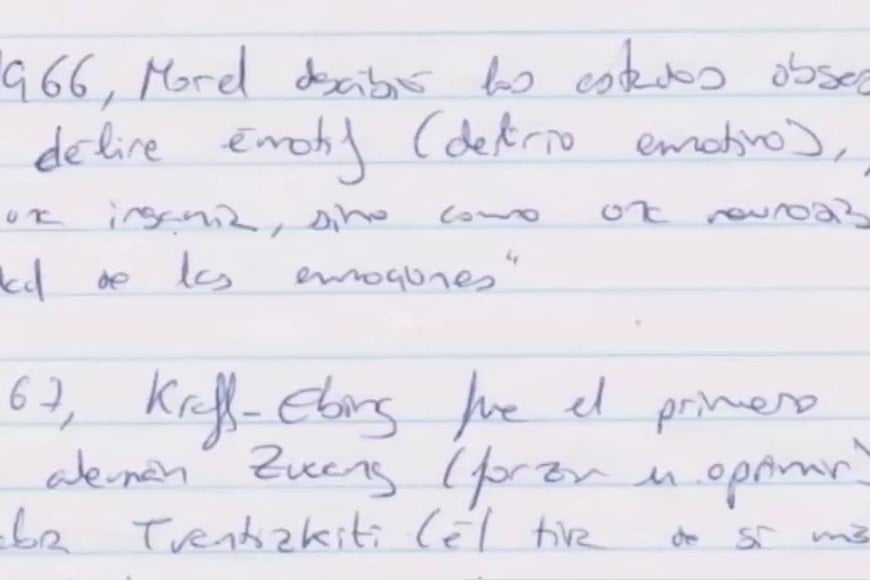 966, Morel describió los estados obses
délire émotif (delirio emotivo),
una insania, sino como una neurosis
de las emociones"
67, Krafft-Ebing fue el primero
alemán Zwang (forzar u oprimir)
Tventizkiti (él tira de sí ma